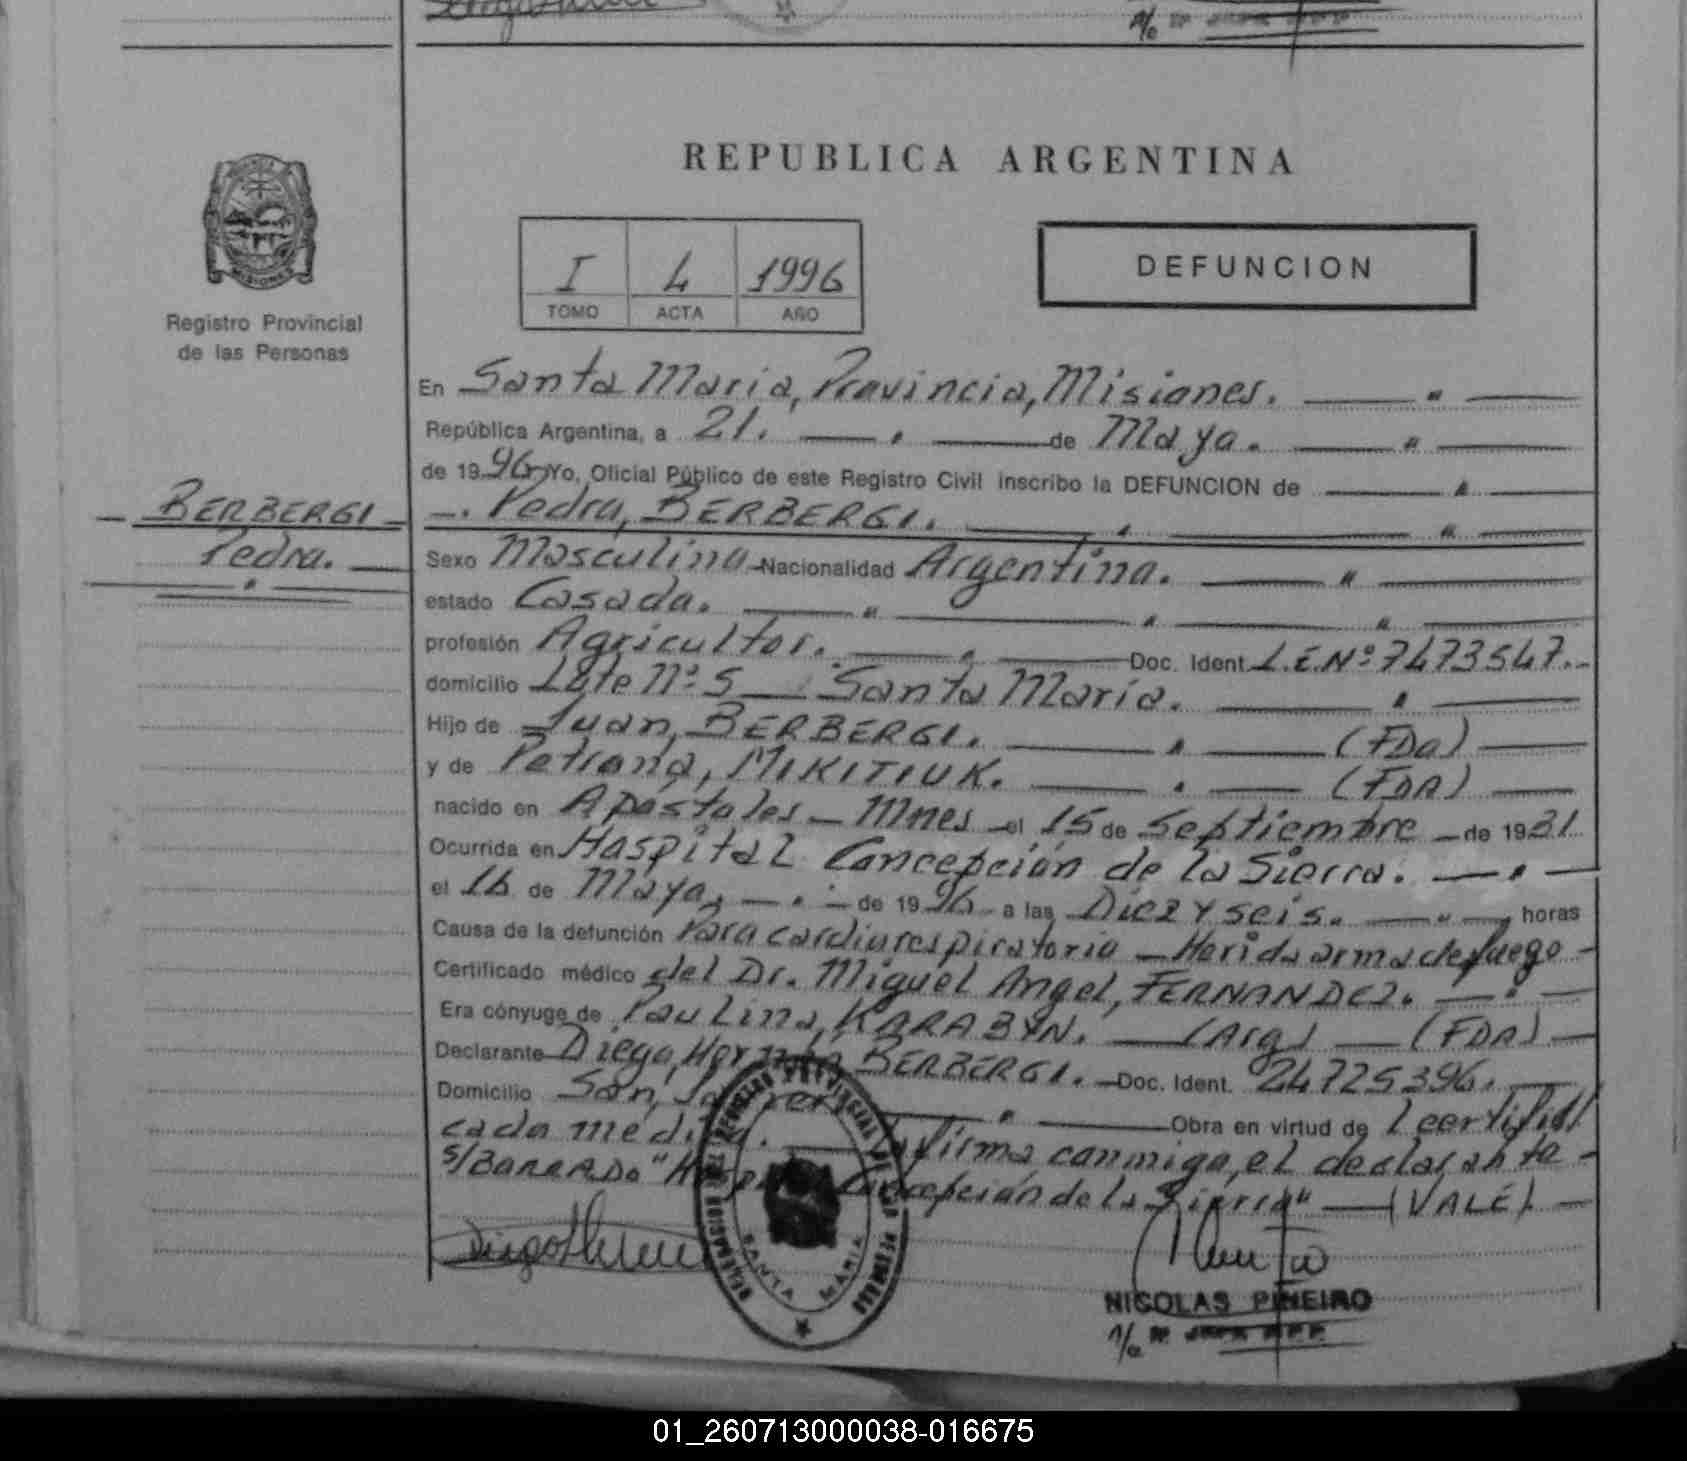 REPUBLICA ARGENTINA
PROVINCIA
MISIONES
Registro Provincial
de las Personas
I 4 1996
TOMO ACTA AÑO
DEFUNCION
En Santa Maria, Provincia, Misiones.
República Argentina, a 21. de Mayo.
de 1996 Yo, Oficial Público de este Registro Civil inscribo la DEFUNCION de
BERBERGI
Pedro.
Pedro, BERBERGI.
Sexo Masculino Nacionalidad Argentina.
estado Casado.
profesión Agricultor. Doc. Ident. L.E.Nº 7473547.
domicilio Lote Nº 5 Santa María.
Hijo de Juan, BERBERGI. (FDO)
y de Petrona, MIKITIUK. (FDA)
nacido en Apóstoles - Mnes el 15 de Septiembre de 1931
Ocurrida en Hospital Concepción de la Sierra.
el 16 de Mayo, de 1996 a las Diez y seis. horas
Causa de la defunción Paro cardiorespiratorio - Herida arma de fuego
Certificado médico del Dr. Miguel Angel, FERNANDEZ.
Era cónyuge de Paulina, KARABYN. (Arg) (FDA)
Declarante Diego, Hernán BERBERGI. Doc. Ident. 24725396.
Domicilio San, Obra en virtud de 1 certifi
cado médico. firma conmigo, el declarante
S/BARRADO "Hospital Concepción de la Sierra" (VALE)
DELEGACION REGISTRO PROVINCIAL DE LAS PERSONAS
SANTA MARIA
NICOLAS PIÑEIRO
01_260713000038-016675